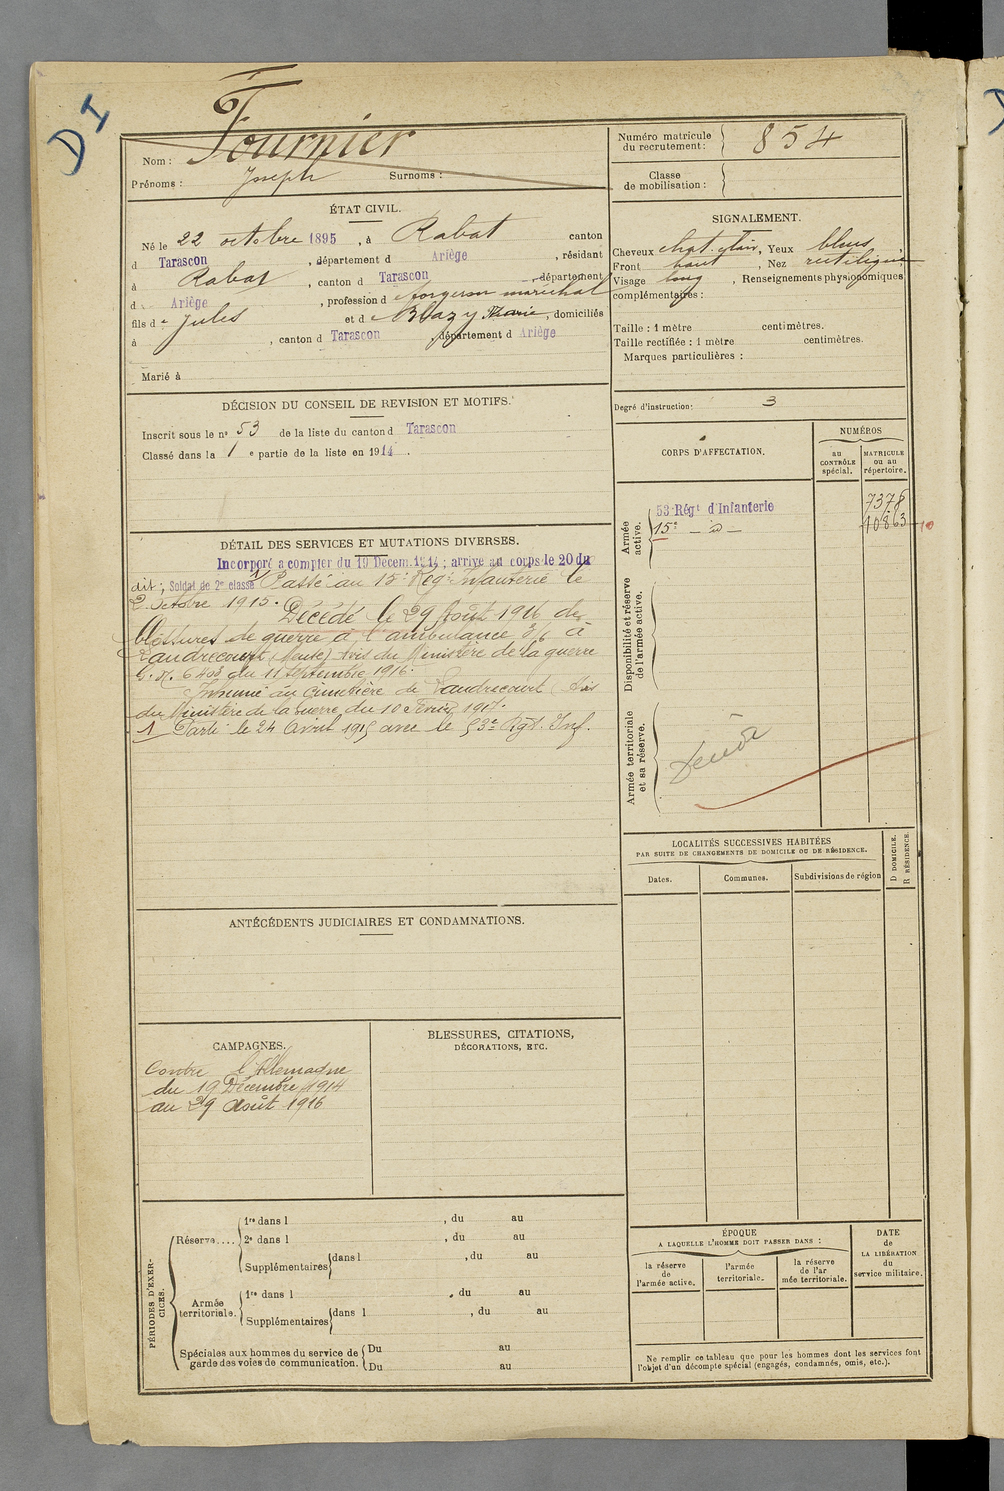 DI
Nom : Fournier
Prénoms : Joseph Surnoms :
Numéro matricule du recrutement : 854
Classe de mobilisation :
ÉTAT CIVIL.
Né le 22 octobre 1895, à Rabat canton
d Tarascon, département d Ariège, résidant
à Rabat, canton d Tarascon, département
d Ariège, profession d forgeron maréchal
fils de Jules et d Blazy Marie, domiciliés
à , canton d Tarascon, département d Ariège
Marié à
SIGNALEMENT.
Cheveux chat. clair, Yeux bleus,
Front haut, Nez rectiligne
Visage long, Renseignements physionomiques
complémentaires :
Taille : 1 mètre centimètres.
Taille rectifiée : 1 mètre centimètres.
Marques particulières :
Degré d'instruction : 3
DÉCISION DU CONSEIL DE REVISION ET MOTIFS.
Inscrit sous le nº 53 de la liste du canton d Tarascon
Classé dans la 1 e partie de la liste en 1914.
CORPS D'AFFECTATION.
NUMÉROS
au CONTRÔLE spécial.
MATRICULE ou au répertoire.
Armée active.
53 Régt d'Infanterie 7378
15e - d - 10863
Disponibilité et réserve de l'armée active.
Armée territoriale et sa réserve.
DÉTAIL DES SERVICES ET MUTATIONS DIVERSES.
Incorporé a compter du 19 Décem. 1914 ; arrivé au corps le 20 du
dit ; Soldat de 2e classe 1/ Passé au 15e Régt Infanterie le
2 Octobre 1915. Décédé le 29 Août 1916 de
blessures de guerre à l'ambulance 3/6 à
Landrecourt (Meuse) Avis du Ministère de la guerre
6408 du 11 septembre 1916
Inhumé au Cimetière de Landrecourt (Avis
du Ministère de la Guerre du 10 1917.
1 Parti le 24 Avril 1915 avec le 53e Rgt. Inf.
LOCALITÉS SUCCESSIVES HABITÉES
PAR SUITE DE CHANGEMENTS DE DOMICILE OU DE RÉSIDENCE.
Dates. Communes. Subdivisions de région
D DOMICILE.
R RÉSIDENCE.
ANTÉCÉDENTS JUDICIAIRES ET CONDAMNATIONS.
CAMPAGNES.
Contre l'Allemagne
du 19 Décembre 1914
au 29 Août 1916
BLESSURES, CITATIONS,
DÉCORATIONS, ETC.
PÉRIODES D'EXERCICES.
Réserve....
1re dans l , du au
2e dans l , du au
Supplémentaires dans l , du au
Armée territoriale.
1re dans l , du au
Supplémentaires dans l , du au
Spéciales aux hommes du service de garde des voies de communication.
Du au
Du au
ÉPOQUE
A LAQUELLE L'HOMME DOIT PASSER DANS :
la réserve de l'armée active.
l'armée territoriale.
la réserve de l'armée territoriale.
DATE de LA LIBÉRATION du service militaire.
Ne remplir ce tableau que pour les hommes dont les services font
l'objet d'un décompte spécial (engagés, condamnés, omis, etc.).